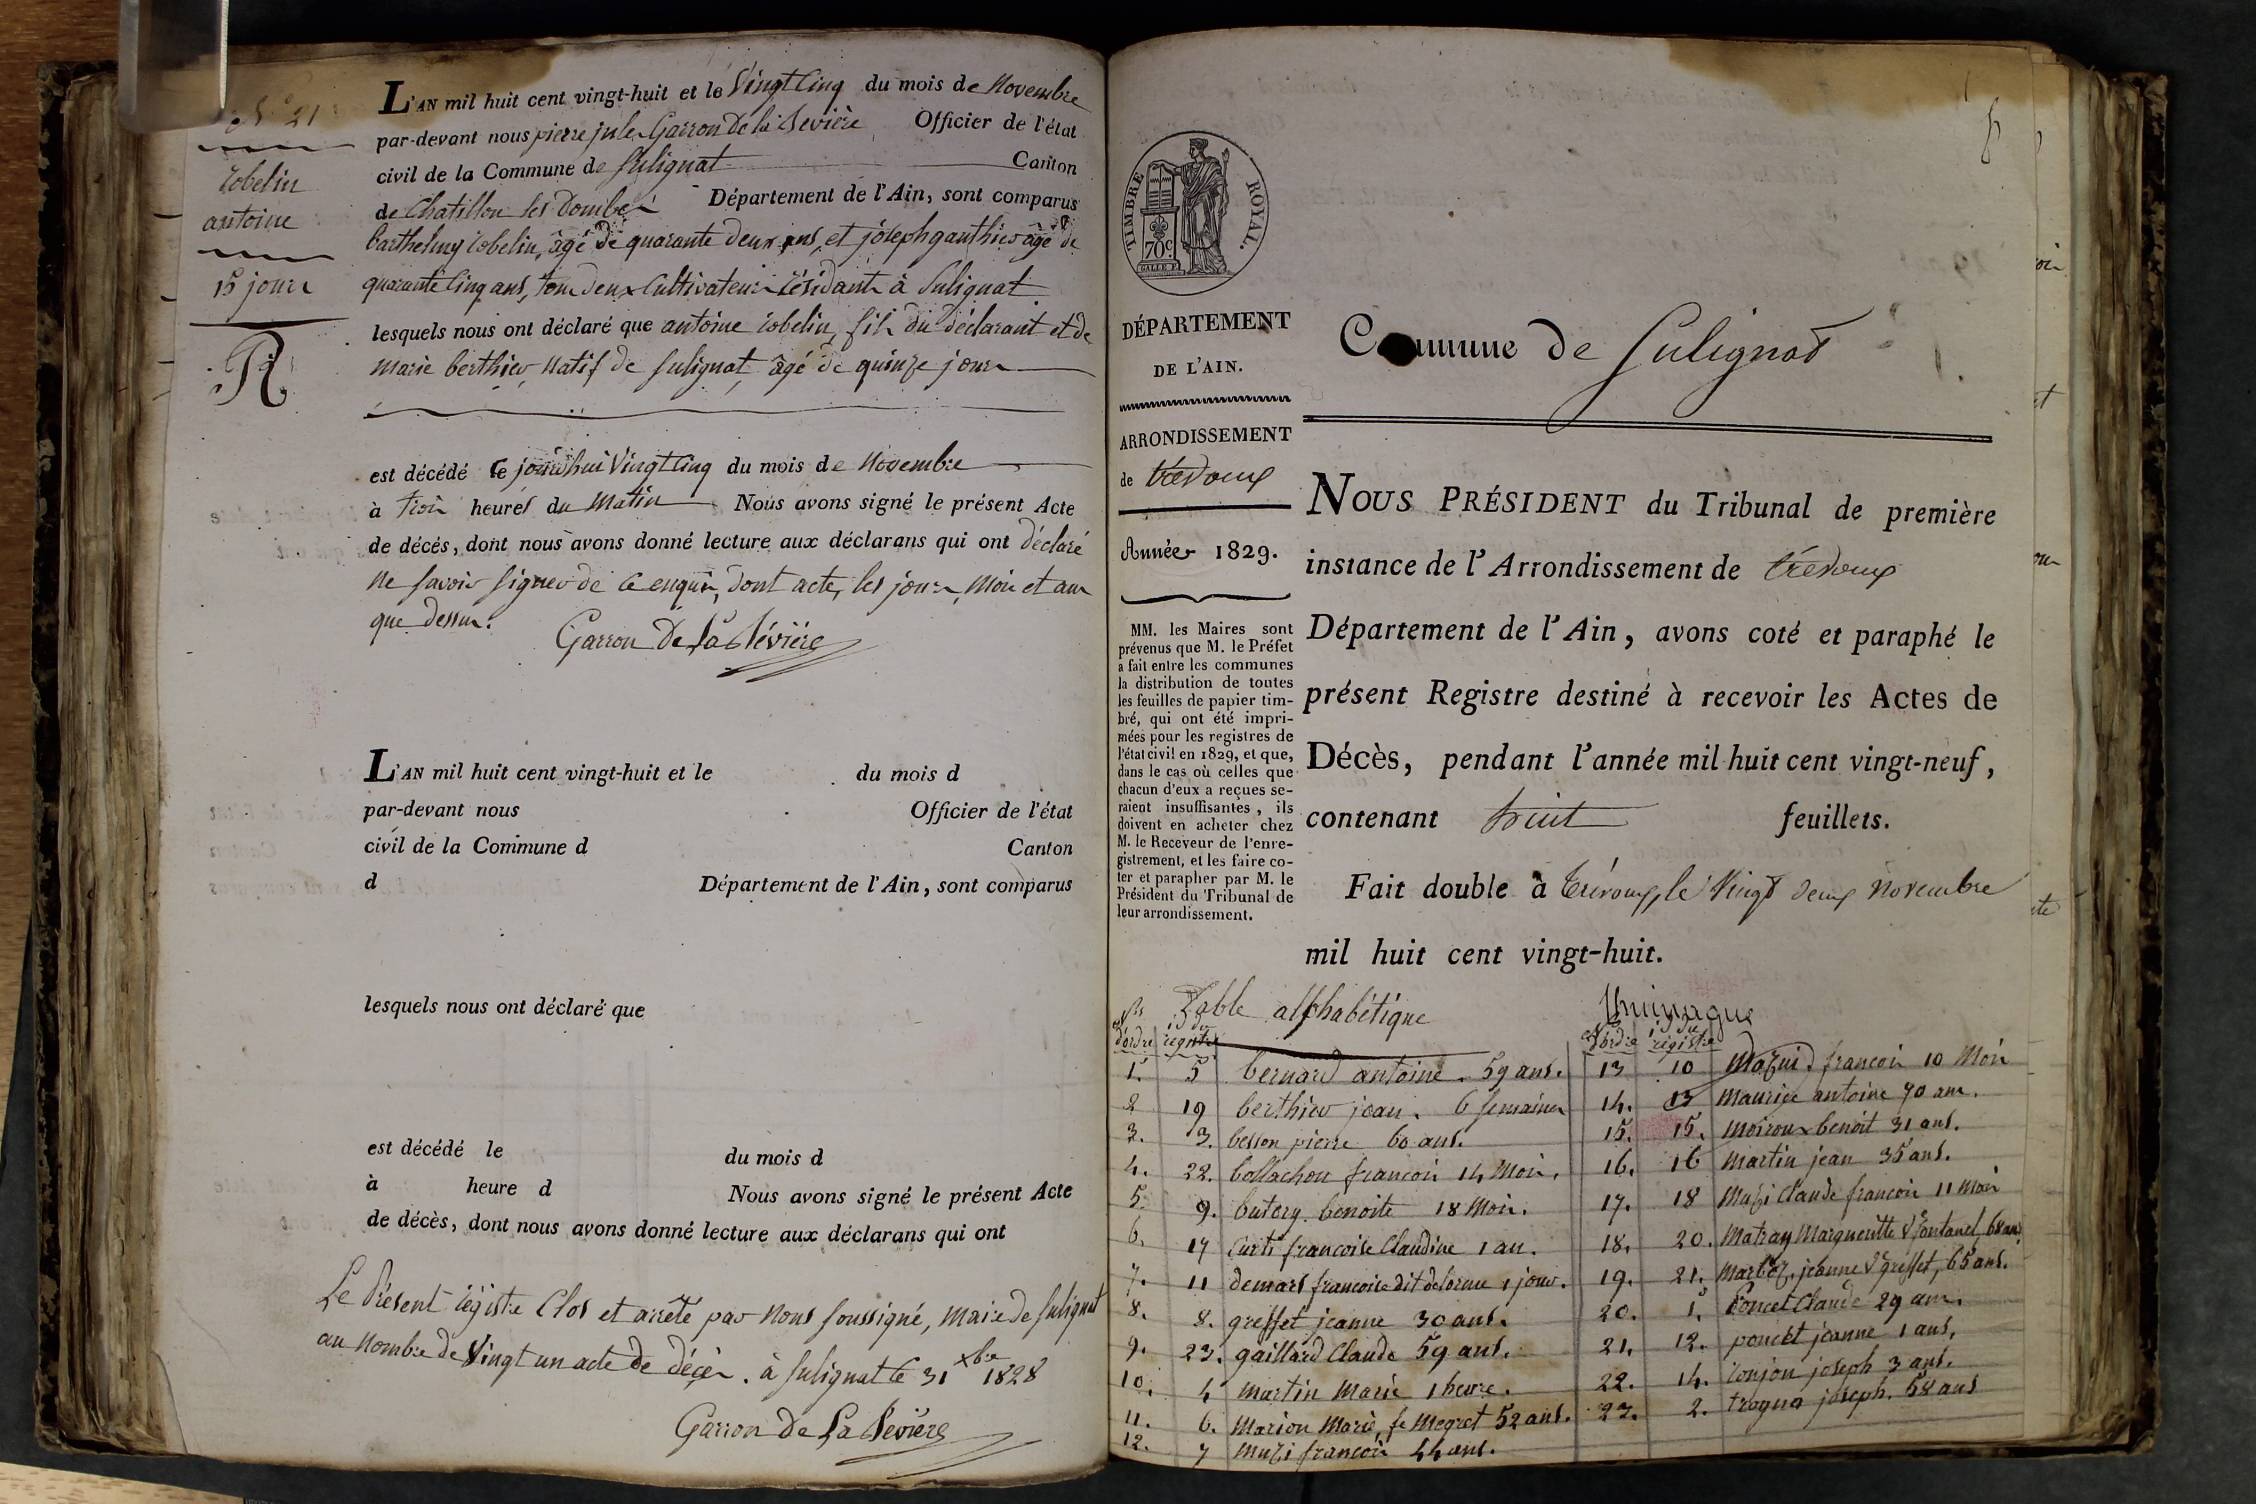 N° 21
Cobelin
antoine
15 jours
R
L'AN mil huit cent vingt-huit et le Vingt Cinq du mois de Novembre
par-devant nous pierre jules Garron De la Bévière Officier de l'état
civil de la Commune de Sulignat Canton
de Chatillon les Dombes Département de l'Ain, sont comparus
barthelmy Cobelin, âgé de quarante deux ans, et joseph gauthier âgé de
quarante Cinq ans, tous deux Cultivateurs Résidants à Sulignat
lesquels nous ont déclaré que antoine Cobelin, fils du déclarant et de
marie berthier, Natif de Sulignat, âgé de quinze jours
est décédé ce jourd'hui Vingt Cinq du mois de Novembre
à trois heures du Matin Nous avons signé le présent Acte
de décès, dont nous avons donné lecture aux déclarans qui ont déclaré
Ne savoir signer de ce enquis, dont acte, les jours, Mois et an
que dessus.
Garron De La Bévière
L'AN mil huit cent vingt-huit et le du mois d
par-devant nous Officier de l'état
civil de la Commune d Canton
d Département de l'Ain, sont comparus
lesquels nous ont déclaré que
est décédé le du mois d
à heure d Nous avons signé le présent Acte
de décès, dont nous avons donné lecture aux déclarans qui ont
Le Présent Régistre Clos et arrêté par Nous soussigné, Maire de Sulignat
au Nombre de Vingt un acte de décès. à Sulignat le 31 xbre 1828
Garron De La Bévière
TIMBRE ROYAL.
70c.
DÉPARTEMENT
DE L'AIN.
ARRONDISSEMENT
de trévoux
Année 1829.
MM. les Maires sont
prévenus que M. le Préfet
a fait entre les communes
la distribution de toutes
les feuilles de papier tim-
bré, qui ont été impri-
mées pour les registres de
l'état civil en 1829, et que,
dans le cas où celles que
chacun d'eux a reçues se-
raient insuffisantes, ils
doivent en acheter chez
M. le Receveur de l'enre-
gistrement, et les faire co-
ter et parapher par M. le
Président du Tribunal de
leur arrondissement.
Commune de Sulignat
NOUS PRÉSIDENT du Tribunal de première
instance de l'Arrondissement de trévoux
Département de l'Ain, avons coté et paraphé le
présent Registre destiné à recevoir les Actes de
Décès, pendant l'année mil huit cent vingt-neuf,
contenant huit feuillets.
Fait double à Trévoux, le Vingt deux Novembre
mil huit cent vingt-huit.
Table alphabétique
Nos d'ordre Nos du registre
1. 5 bernard antoine. 59 ans.
2 19 berthier jean. 6 semaines
3. 3. besson pierre 60 ans.
4. 22. bollachon francois 14 Mois.
5. 9. butery benoite 18 Mois.
6. 17 Curti francoise Claudine 1 an.
7. 11 demars francoise dit delorme 1 jour.
8. 8. greffet jeanne 30 ans.
9. 23. gaillard Claude 59 ans.
10. 4 Martin Marie 1 heure.
11. 6. Marion Marie, fe Megret 52 ans.
12. 7 Muzi francois 44 ans.
Nos d'ordre Nos du régistre
13 10 francois 10 Mois
14. 13 Maurice antoine 70 ans.
15. 15. Moiroux benoit 31 ans.
16. 16 Martin jean 35 ans.
17. 18 Muzi Claude francois 11 Mois
18. 20. Matray Margueritte Ve fontanel, 68 ans
19. 21. jeanne Ve greffet, 65 ans.
20. 1. Poncet Claude 29 ans.
21. 12. poncet jeanne 1 ans.
22. 14. joseph 3 ans.
23. 2. joseph. 58 ans